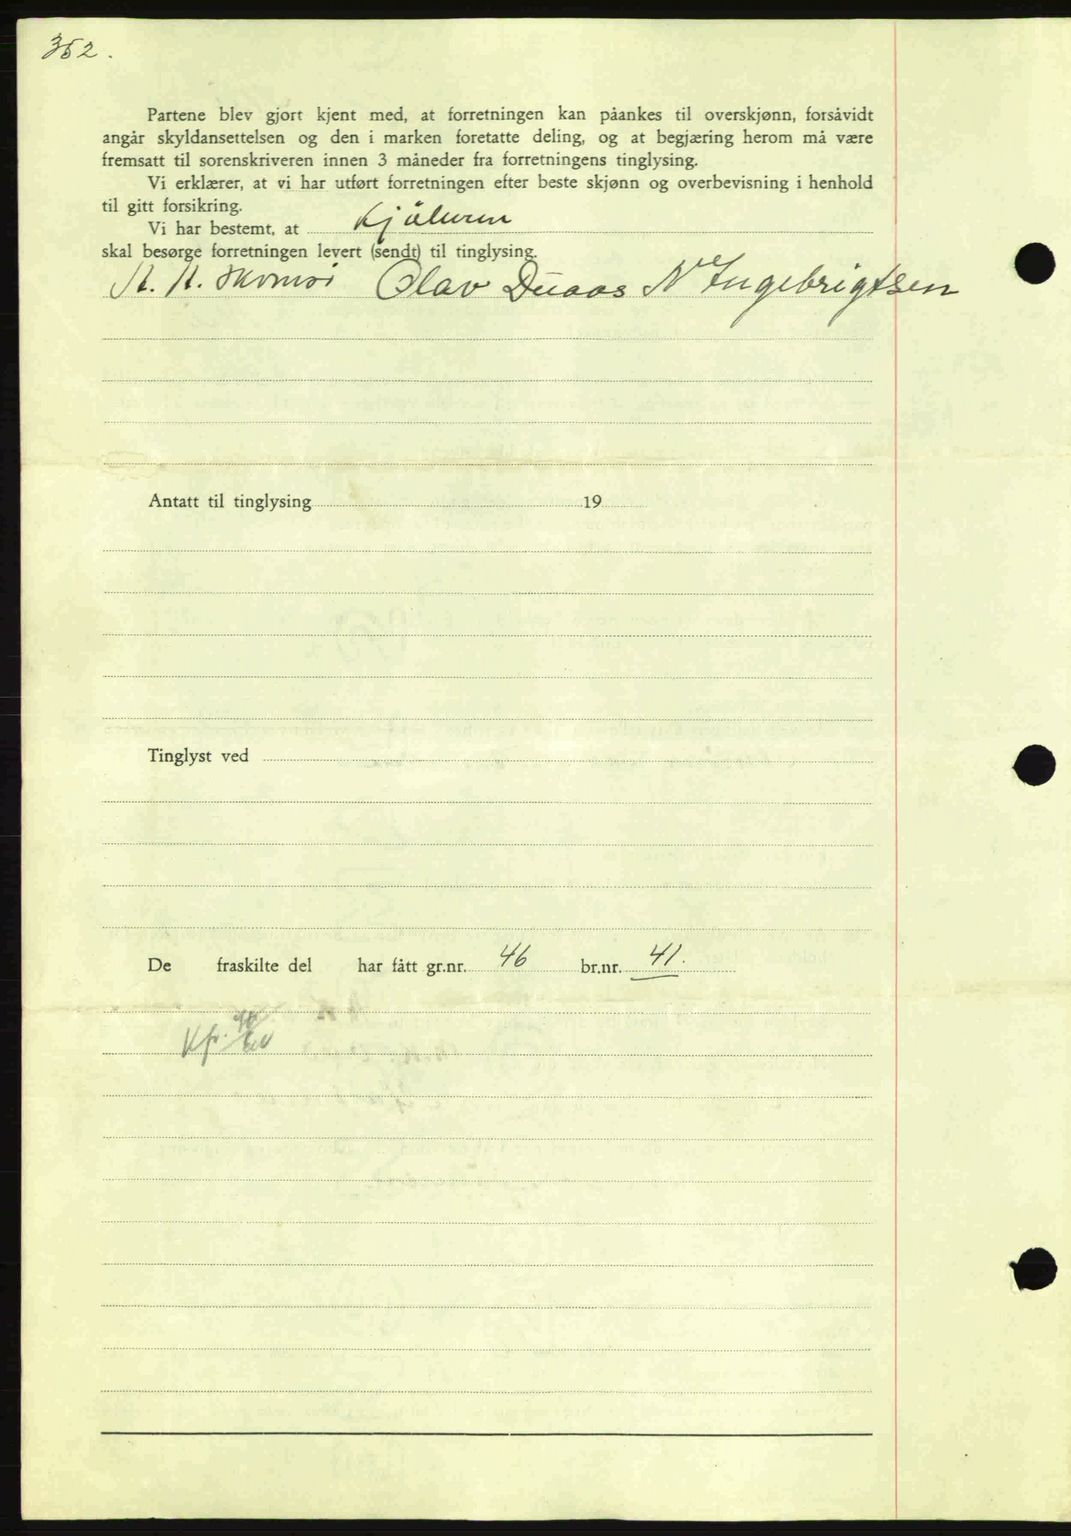 352.
Partene blev gjort kjent med, at forretningen kan påankes til overskjønn, forsåvidt
angår skyldansettelsen og den i marken foretatte deling, og at begjæring herom må være
fremsatt til sorenskriveren innen 3 måneder fra forretningens tinglysing.
Vi erklærer, at vi har utført forretningen efter beste skjønn og overbevisning i henhold
til gitt forsikring.
Vi har bestemt, at Kjöberen
skal besørge forretningen levert (sendt) til tinglysing.
Olav Duaas N Ingebrigtsen
Antatt til tinglysing 19
Tinglyst ved
De fraskilte del har fått gr.nr. 46 br.nr. 41.
Kfr.